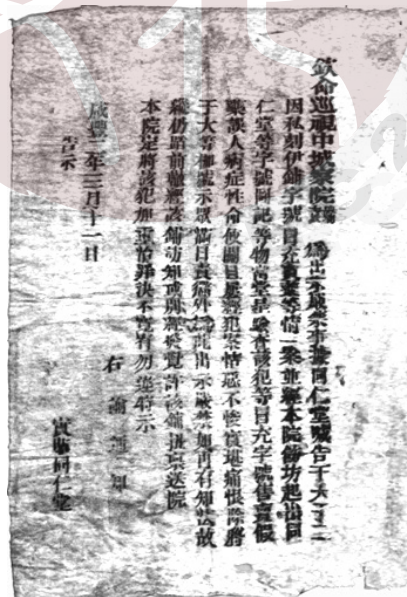 欽命巡視中城察院 為出示嚴禁事據同仁堂呈告于大 王二
因私刻伊鋪字號目充賣藥等情一案並經本院飭坊起出同
仁堂等字號圖記等物當堂 驗查該犯等目充字號售賣假
藥誤人病症性命攸關且屢經犯案情殊不 實堪痛恨除將
于大等枷號示眾 日責 外為此出示嚴禁如再有知法故
仍照前 經該鋪訪知或別經發覺許該鋪扭稟送院
本院定將該犯加重治罪決不寬宥勿違特示
右諭通知
咸豐二年三月十一日
告示
實貼同仁堂